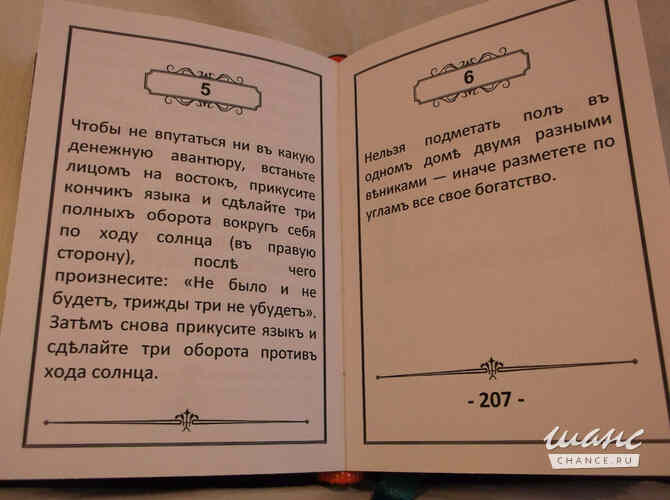 5
Чтобы не впутаться ни въ какую
денежную авантюру, встаньте
лицомъ на востокъ, прикусите
кончикъ языка и сдѣлайте три
полныхъ оборота вокругъ себя
по ходу солнца (въ правую
сторону), послѣ чего
произнесите: «Не было и не
будетъ, трижды три не убудетъ».
Затѣмъ снова прикусите языкъ и
сдѣлайте три оборота противъ
хода солнца.
6
Нельзя подметать полъ въ
одномъ домѣ двумя разными
вѣниками — иначе разметете по
угламъ все свое богатство.
- 207 -
шанс
CHANCE.RU